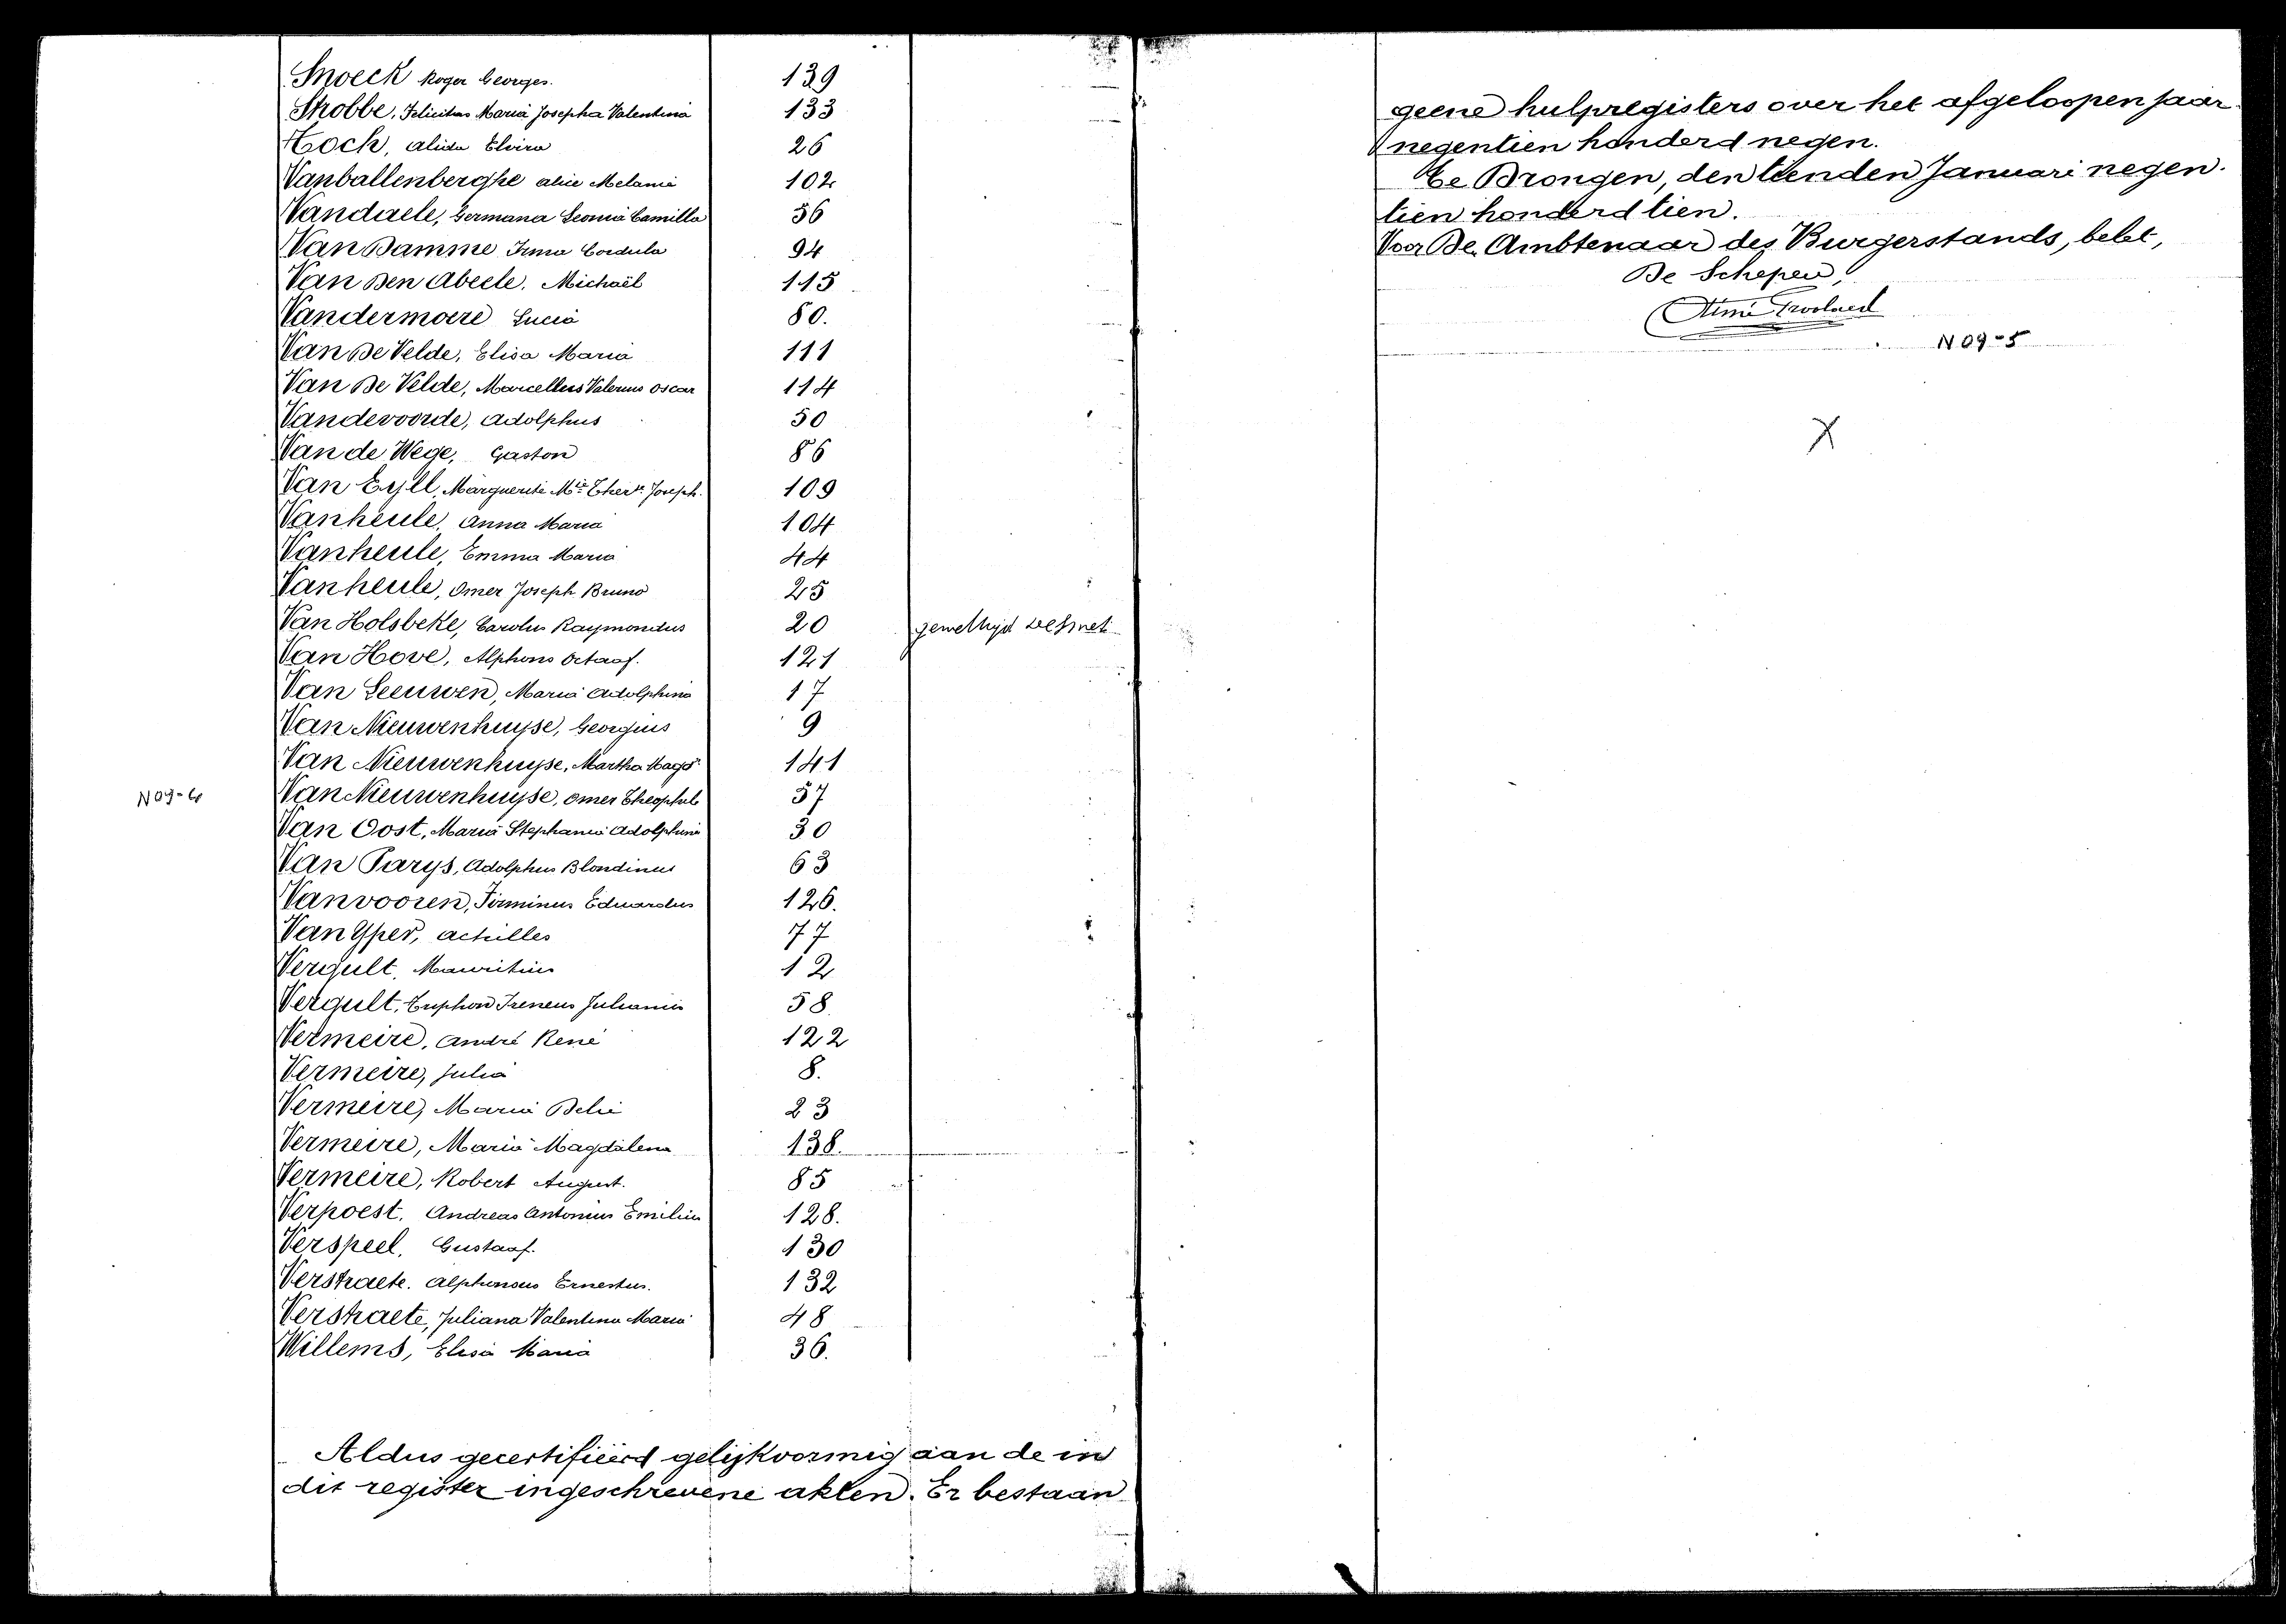 Snoeck Roger Georges. 139
Strobbe, Felicitas Maria Josepha Valentina 133
Tock, Alida Elvira 26
Vanballenberghe Alice Melanie 102
Vandaele, Germana Leonia Camilla 56
Van Damme Irma Cordula 94
Van Den Abeele, Michaël 115
Vandermoere Lucia 80.
Van De Velde, Elisa Maria 111
Van De Velde, Marcellus Valerius Oscar 114
Vandevoorde, Adolphus 50
Van de Wege, Gaston 86
Van Eyll, Marguerite Mie Joseph. 109
Vanheule, Anna Maria 104
Vanheule, Emma Maria 44
Vanheule, Omer Joseph Bruno 25
Van Holsbeke, Carolus Raymondus 20
Van Hove, Alphons Octaaf. 121
Van Leeuwen, Maria Adolphina 17
Van Nieuwenhuyse, Georgius 9
Van Nieuwenhuyse, Martha Magd 141
N 09-4 Van Nieuwenhuyse, Omer Theophile 57
Van Oost, Maria Stephania Adolphina 30
Van Parys, Adolphus Blondinus 63
Vanvooren, Firminus Eduardus 126.
Van Yper, Achilles 77
Vergult, Mauritius 12
Vergult, Ireneus Julianus 58.
Vermeire, André René 122
Vermeire, Julia 8.
Vermeire, Maria 23
Vermeire, Maria Magdalena 138.
Vermeire, Robert August. 85
Verpoest, Andreas Antonius Emilius 128.
Verspeel, Gustaaf. 130
Verstraete, Alphonsus Ernestus. 132
Verstraete, Juliana Valentina Maria 48
Willems, Elisa Maria 36.
Aldus gecertifiëerd gelijkvormig aan de in
dit register ingeschrevene akten. Er bestaan
geene hulpregisters over het afgeloopen jaar
negentien honderd negen.
Te Drongen, den tienden Januari negen-
tien honderd tien.
Voor De Ambtenaar des Burgerstands, belet,
De Schepen,
N 09-5
X